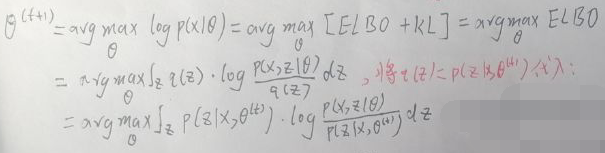 θ^(t+1) = arg max_θ log p(x|θ) = arg max_θ [ELBO + KL] = arg max_θ ELBO
= arg max_θ ∫_z q(z) · log p(x,z|θ)/q(z) dz , 将 q(z) = p(z|x,θ^(t)) 代入:
= arg max_θ ∫_z p(z|x,θ^(t)) · log p(x,z|θ)/p(z|x,θ^(t)) dz